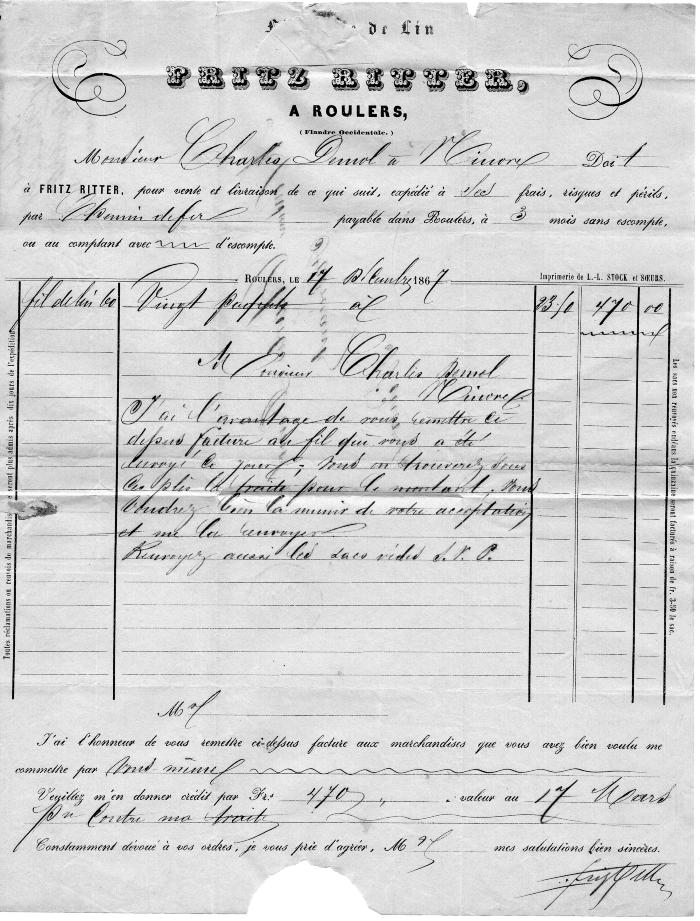 de Lin
FRITZ RITTER,
A ROULERS,
(Flandre Occidentale.)
Monsieur Charles Demol à Ninove Doit
à FRITZ RITTER, pour vente et livraison de ce qui suit, expédié à Ses frais, risques et périls,
par Chemin de fer payable dans Roulers, à 3 mois sans escompte,
ou au comptant avec d'escompte.
ROULERS, LE 17 Décembre 1867. Imprimerie de L.-L. STOCK et SŒURS.
fil de lin 60 Vingt paquets à 23.50 470 00
Monsieur Charles Demol
à Ninove
J'ai l'avantage de vous remettre ci
dessus facture au fil qui vous a été
envoyé ce jour; vous trouverez sous
ce plis la traite pour le montant. Vous
voudrez bien la munir de votre acceptation
et me la renvoyer
Renvoyez aussi les sacs vides S. V. P.
Toutes réclamations ou renvois de marchandise ne seront plus admis après dix jours de l'expédition
Les sacs non renvoyés endéans la quinzaine seront facturés à raison de fr. 3-50 le sac.
M
J'ai l'honneur de vous remettre ci-dessus facture aux marchandises que vous avez bien voulu me
commettre par vous même
Veuillez m'en donner crédit par Fr. 470 " valeur au 17 Mars
pn Contre ma traite
Constamment dévoué à vos ordres, je vous prie d'agréer, M mes salutations bien sincères.